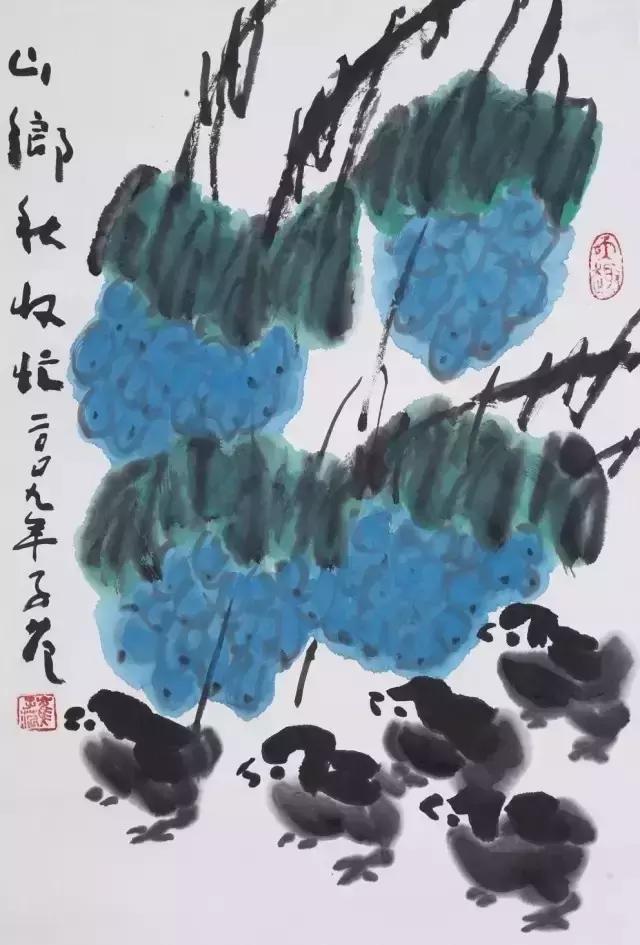 山鄉秋收忙二〇〇九年子